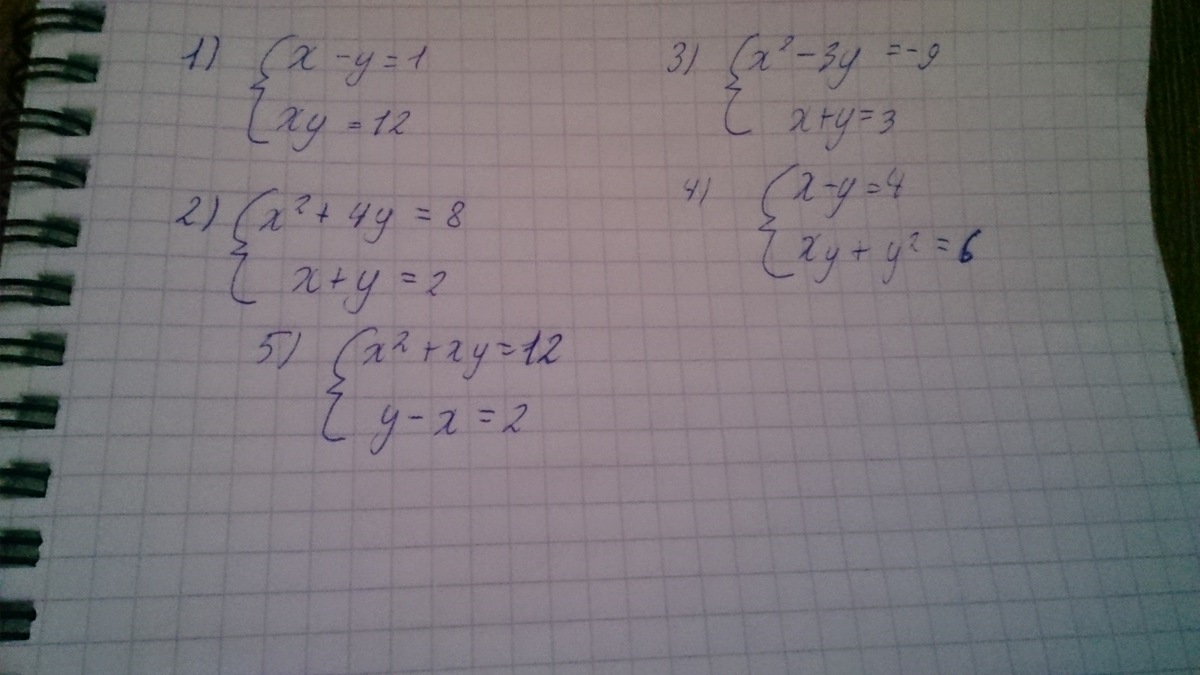 1) { x - y = 1
xy = 12
2) { x² + 4y = 8
x + y = 2
3) { x² - 3y = -9
x + y = 3
4) { x - y = 4
xy + y² = 6
5) { x² + xy = 12
y - x = 2